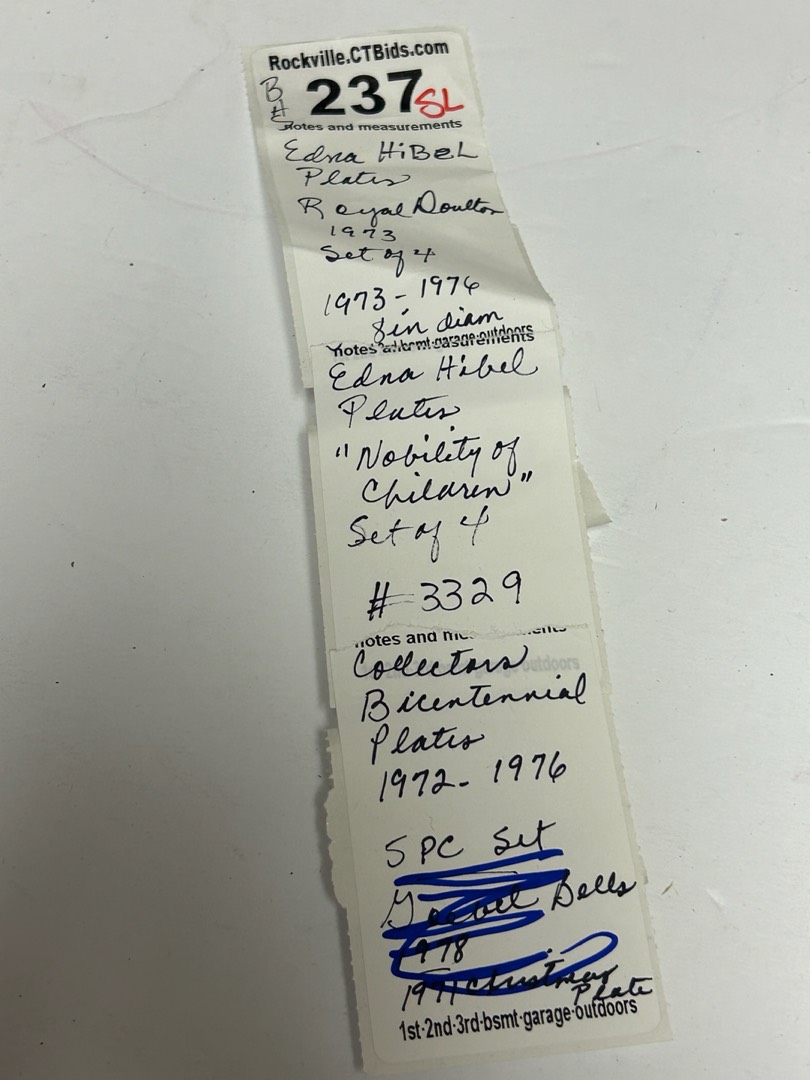 Rockville.CTBids.com
B# 237 SL
notes and measurements
Edna HiBeL
Plates
Royal Doulton
1973
Set of 4
1973 - 1976
8in diam
notes
Edna Hibel
Plates
"Nobility of
Children"
Set of 4
# 3329
notes and
Collectors
Bicentennial
Plates
1972 - 1976
5 PC Set
Bells
1978
1971 Christmas
Plate
1st·2nd·3rd·bsmt·garage·outdoors